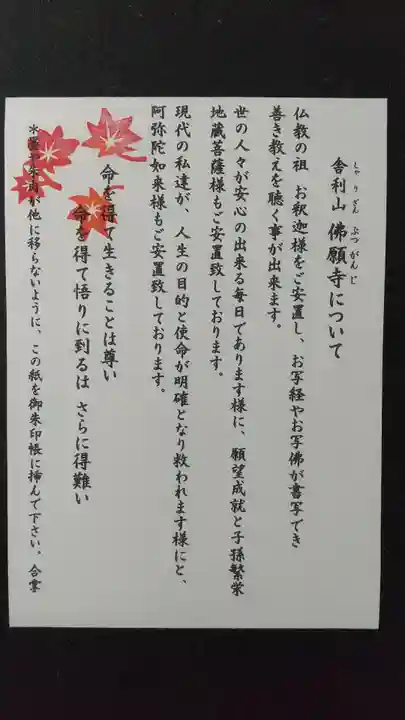 舎利山 佛願寺について
しゃりざん ぶつがんじ
仏教の祖 お釈迦様をご安置し、お写経やお写佛が書写でき
善き教えを聴く事が出来ます。
世の人々が安心の出来る毎日であります様に、願望成就と子孫繁栄
地蔵菩薩様もご安置致しております。
現代の私達が、人生の目的と使命が明確となり救われます様にと、
阿弥陀如来様もご安置致しております。
命を得て生きることは尊い
命を得て悟りに到るは さらに得難い
＊墨や朱肉が他に移らないように、この紙を御朱印帳に挿んで下さい。合掌